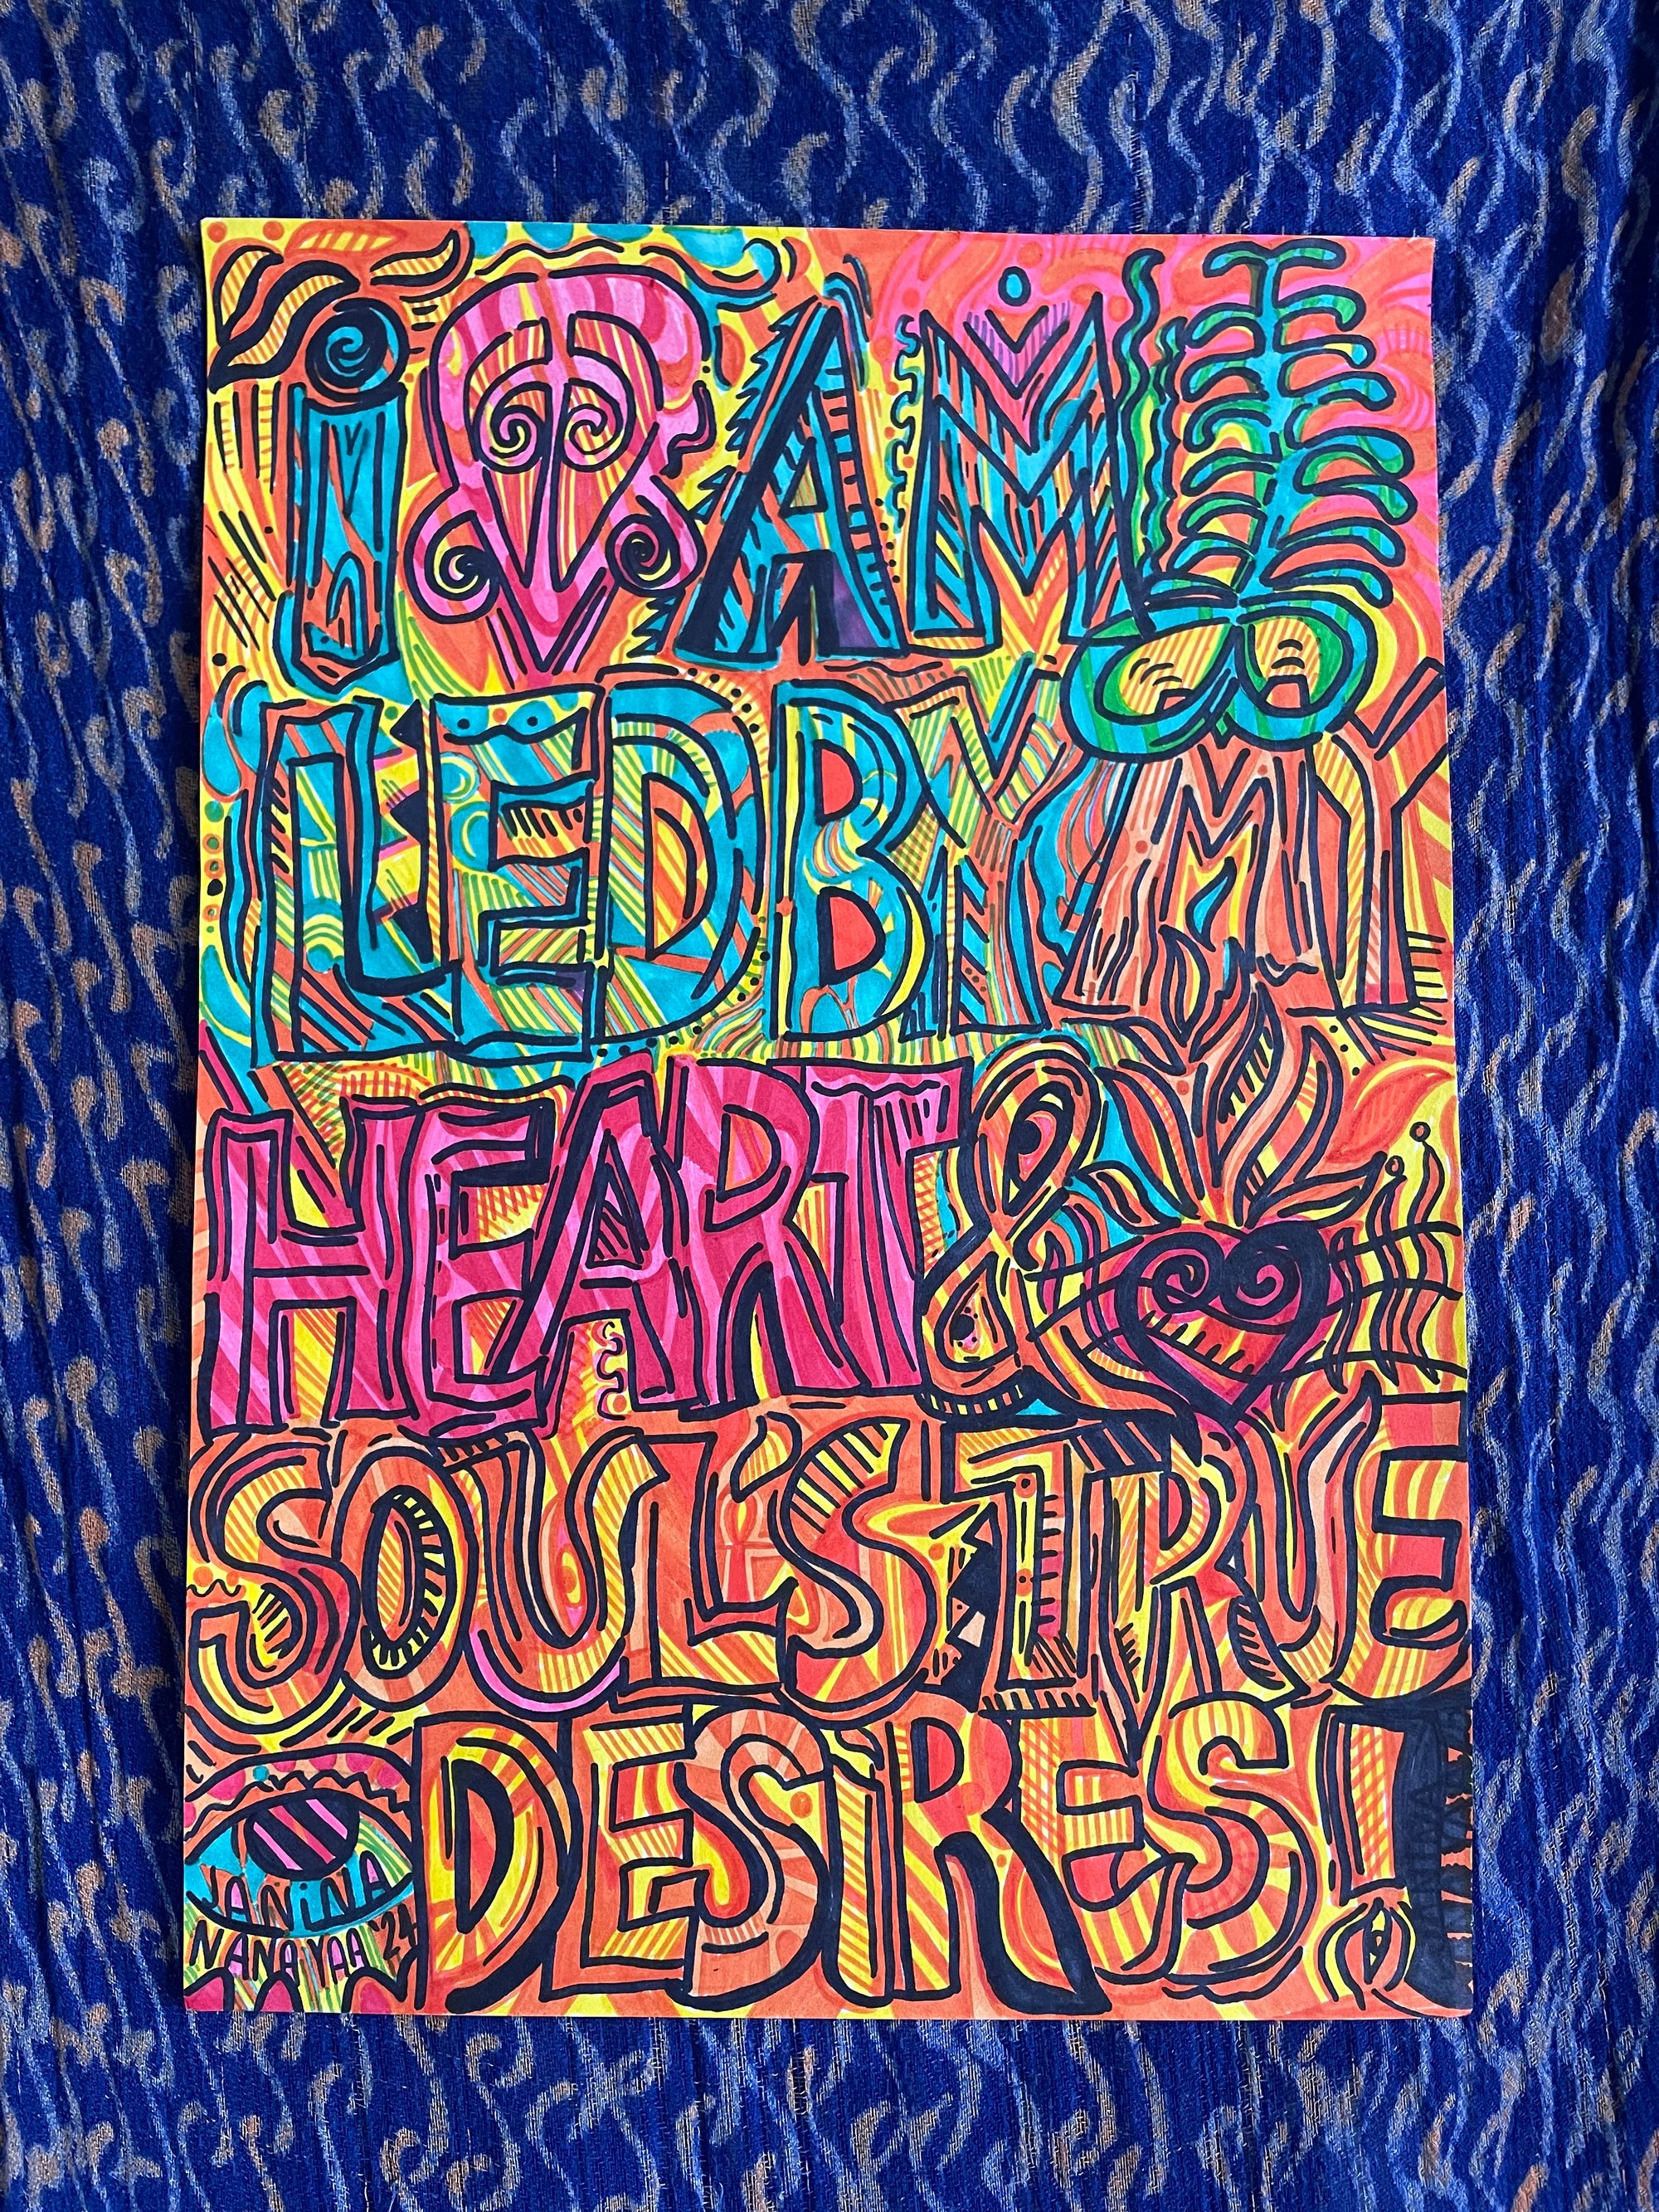 i AM
LED BY MY
HEART &
SOUL'S TRUE
DESIRES!
JANiNA
NANA YAA '24